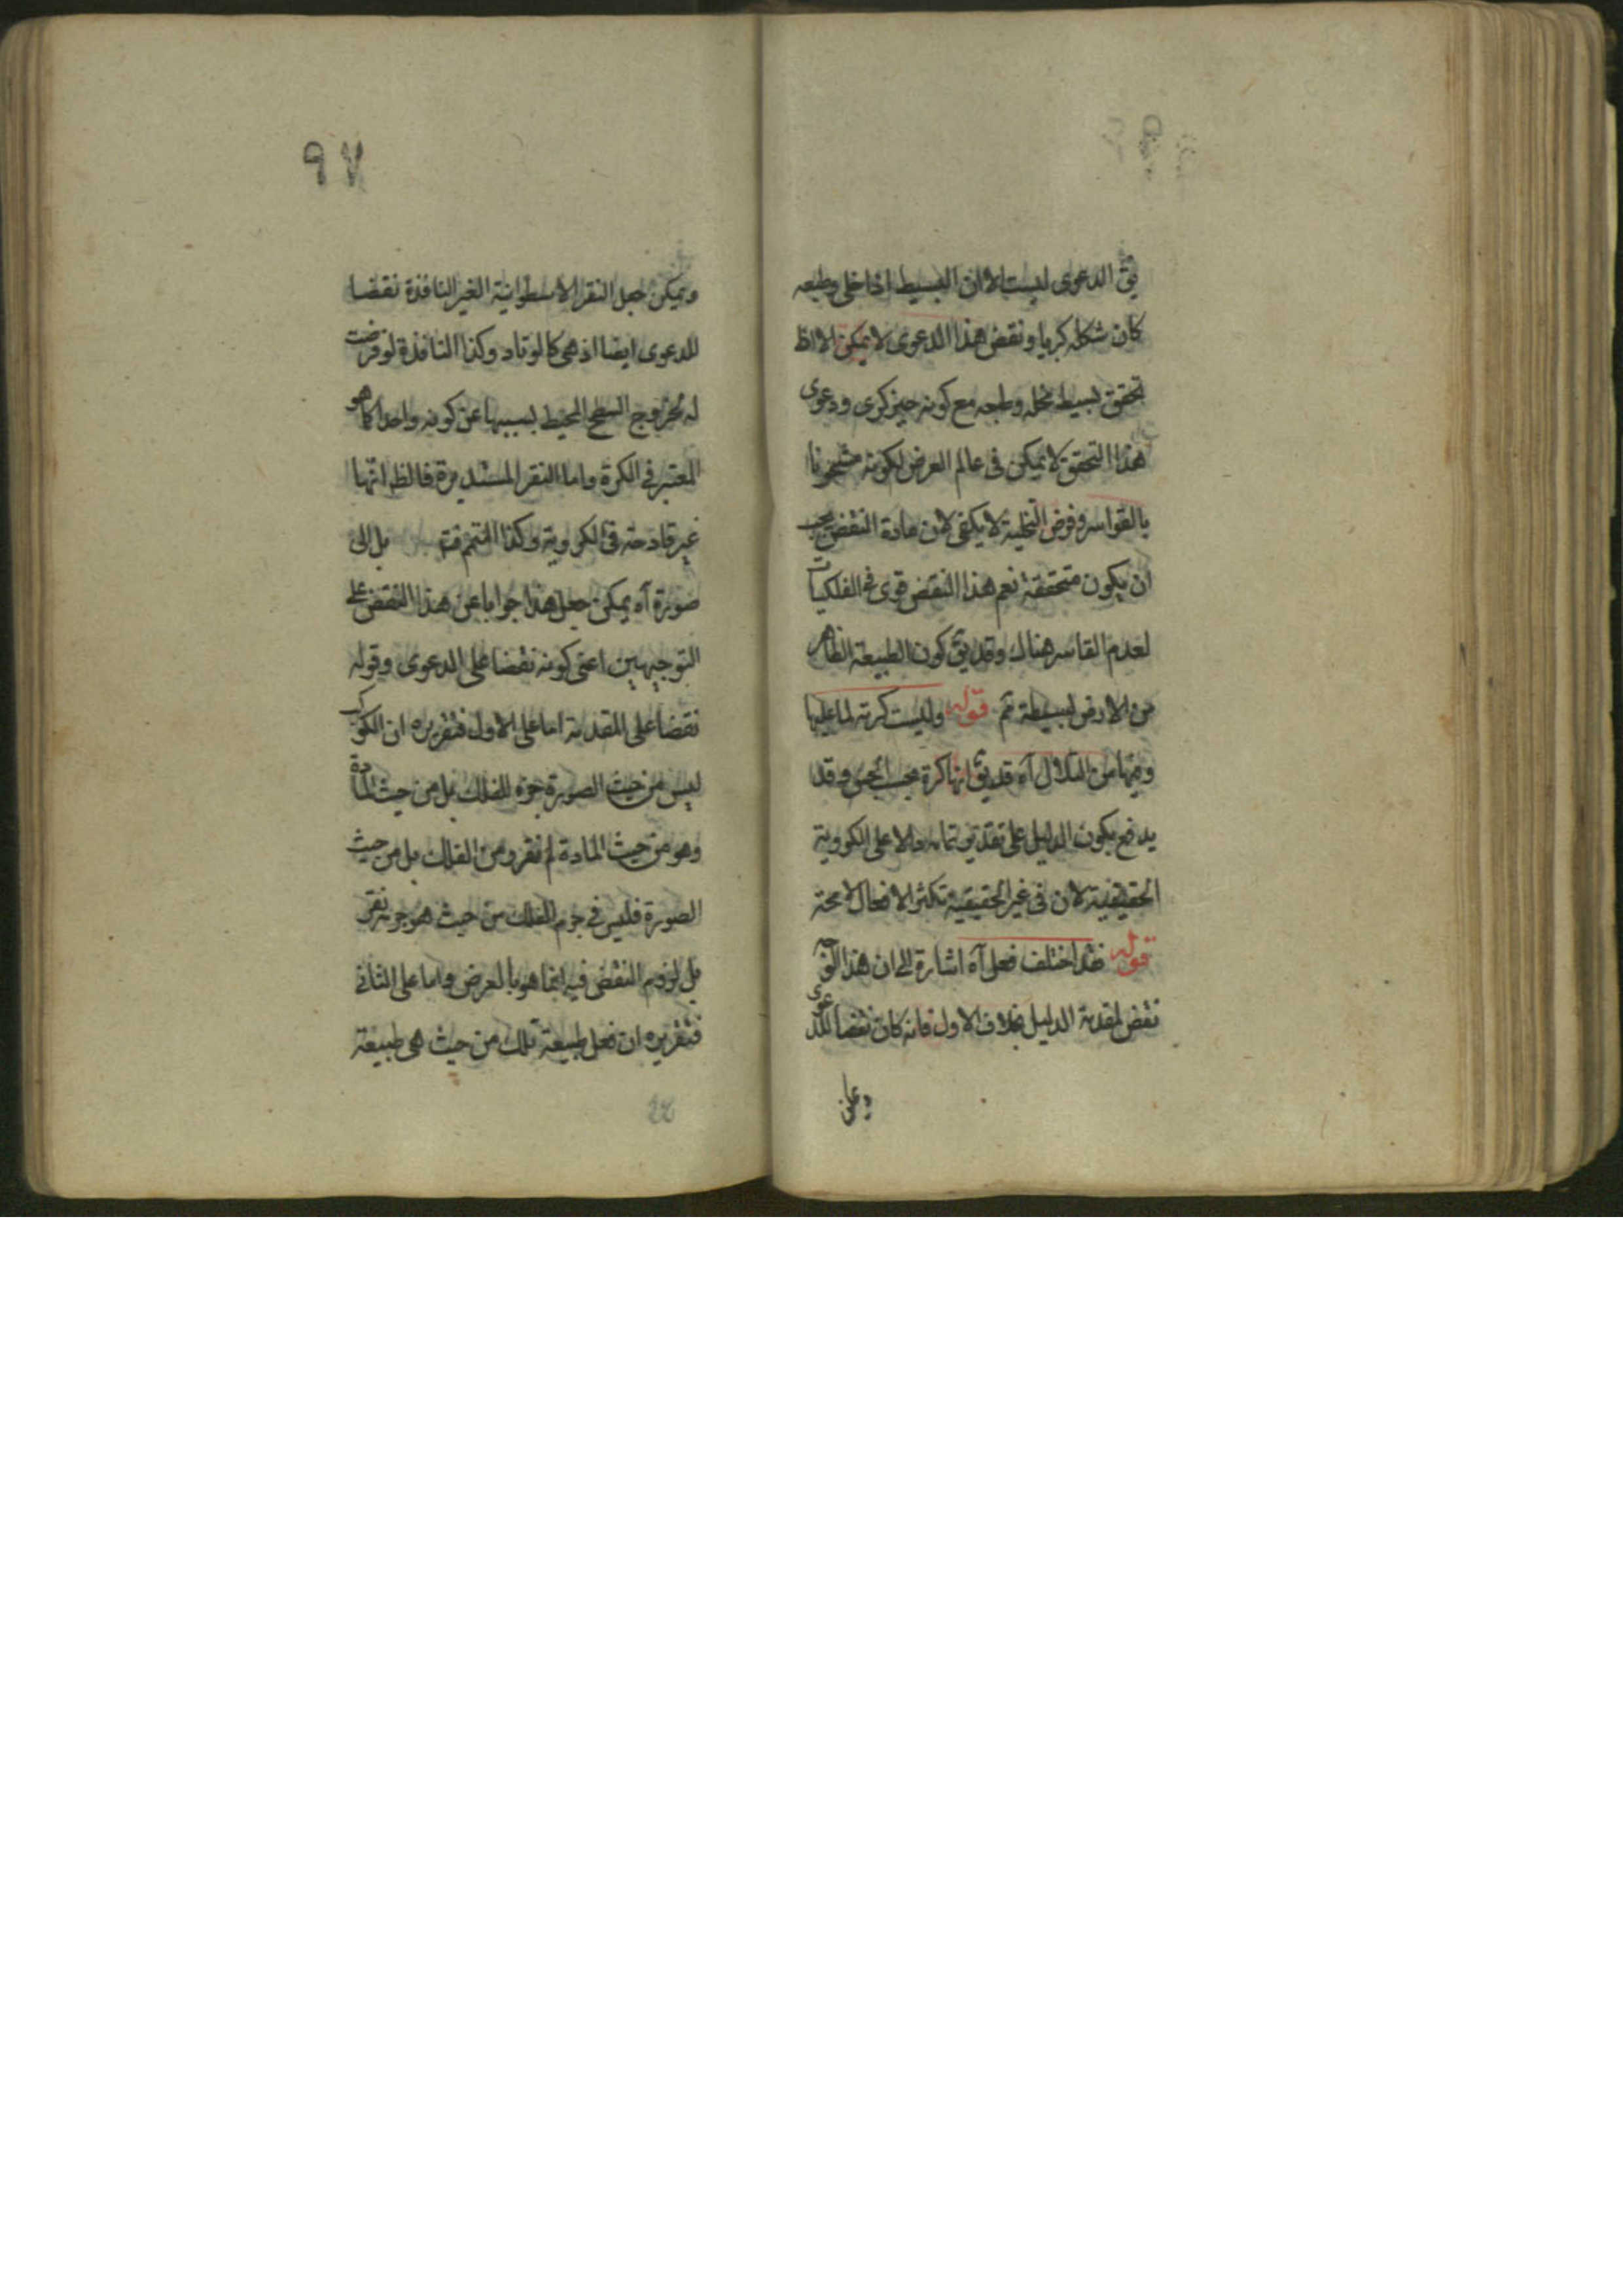 يق الدعوى ليست الا ان البسيط اذا خلى وطبعه
كان شكله كريا ونقض هذا الدعوى لا يمكن الا اذا
تحقق بسيط مخلى وطبعه مع كونه غير كرى ودعوى
هذا التحقق لا يمكن فى عالم العرض لكونه مشحونا
بالقواسر وفرض التخلية لا يكفى لان مادة النقض يجب
ان يكون متحققة نعم هذا النقض قوى فى الفلكيات
لعدم القاسر هناك وقد يق كون الطبيعة الظاهر
من الارض بسيطة ثم قوله وليست كرية لما عليها
وفيها من التلال آه قد يق انها كرة بحسب الحس وقد
يدفع بكون الدليل على تقدير تمامه دالا على الكروية
الحقيقية لان فى غير الحقيقية تكثر الافعال لا محة
قوله فقد اختلف فعل آه اشارة الى ان هذا الوجه
نقض لمقدمة الدليل بخلاف الاول فانه كان نقضا للدعوى
ويمكن
٩٧
ويمكن جعل النقر الاسطوانية الغير النافذة نقضا
للدعوى ايضا اذ هى كالوتاد وكذا النافذة لو فرضت
له لخروج السطح المحيط بسببها عن كونه واحدا كما هو
المعتبر فى الكرة واما النقر المستديرة فالظ انها
غير قادحة فى الكروية وكذا المتمم بل الى
صورة آه يمكن جعل هذا جوابا عن هذا النقض على
التوجيهين اعنى كونه نقضا على الدعوى وقوله
نقضا على المقدمة اما على الاول فتقريره ان الكوكب
ليس من حيث الصورة جزء للفلك بل من حيث المادة
وهو من حيث المادة لم نقر ومن الفلك بل من حيث
الصورة فليس فى جرم الفلك من حيث هو جرمه نقر
بل لزوم النقض فيه انما هو بالعرض واما على الثانى
فتقريره ان فعل طبيعة تلك من حيث هى طبيعة